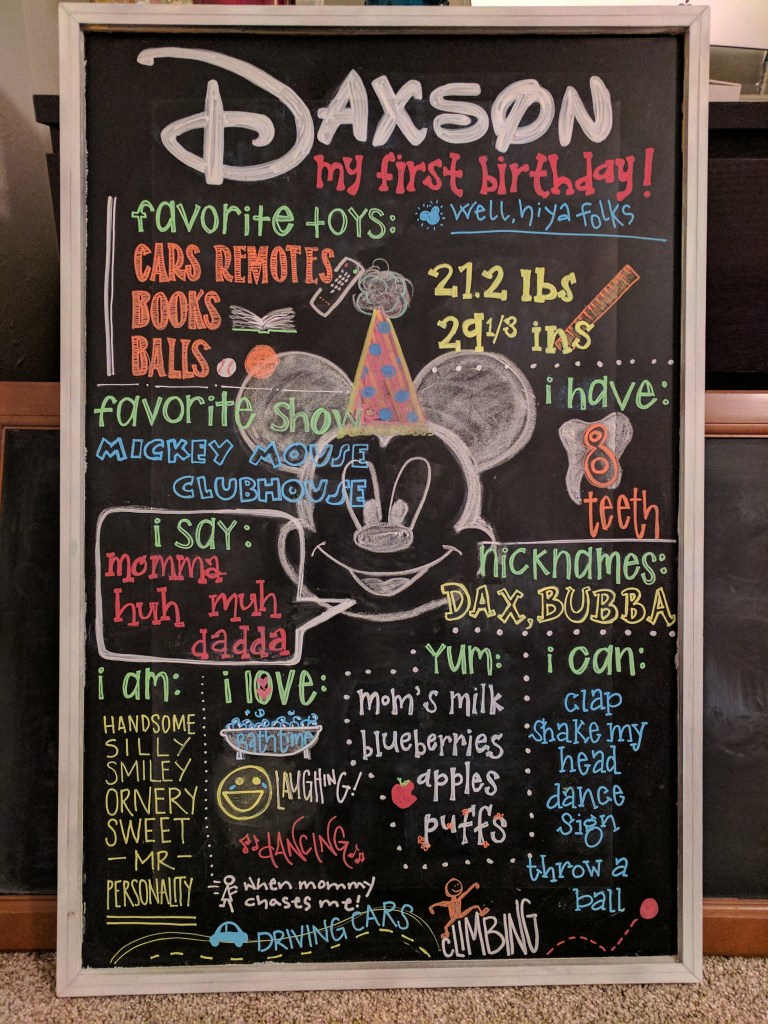 DAXSON
my first birthday!
favorite toys:
well, hiya folks
CARS REMOTES
BOOKS
BALLS
21.2 lbs
29 1/3 ins
favorite show
MICKEY MOUSE
CLUBHOUSE
i have:
8
teeth
i say:
momma
huh muh
dadda
nicknames:
DAX, BUBBA
i am:
HANDSOME
SILLY
SMILEY
ORNERY
SWEET
-MR-
PERSONALITY
i love:
Bathtime
LAUGHING!
DANCING
when mommy
chases me!
DRIVING CARS
CLIMBING
yum:
mom's milk
blueberries
apples
puffs
i can:
clap
shake my
head
dance
sign
throw a
ball